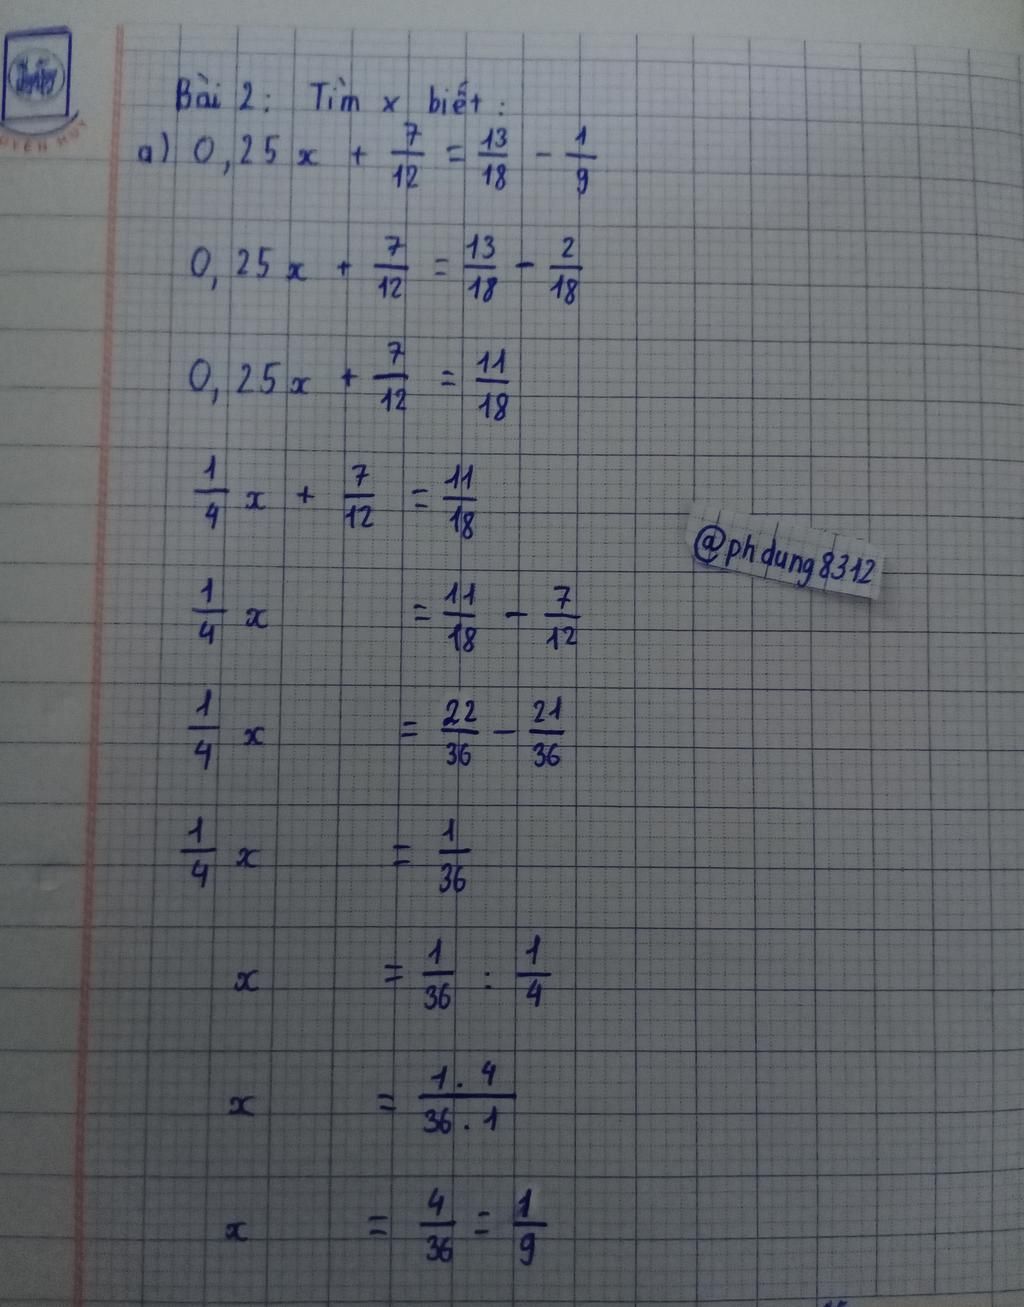 Bài 2: Tìm x biết:
a) 0,25x + 7/12 = 13/18 - 1/9
0,25x + 7/12 = 13/18 - 2/18
0,25x + 7/12 = 11/18
1/4 x + 7/12 = 11/18
@phdung8312
1/4 x = 11/18 - 7/12
1/4 x = 22/36 - 21/36
1/4 x = 1/36
x = 1/36 : 1/4
x = 1.4/36.1
x = 4/36 = 1/9